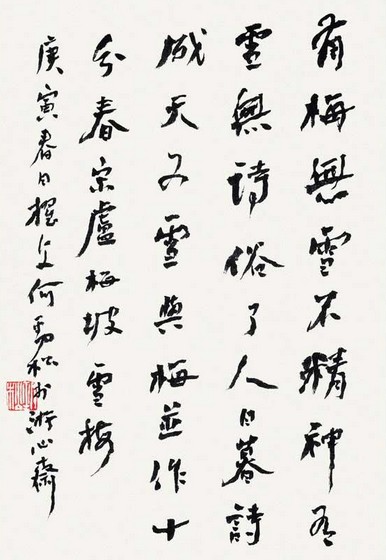 有梅無雪不精神有
雪無詩俗了人日暮詩
成天又雪與梅並作十
分春宋盧梅坡雪梅
庚寅春日何游心齋